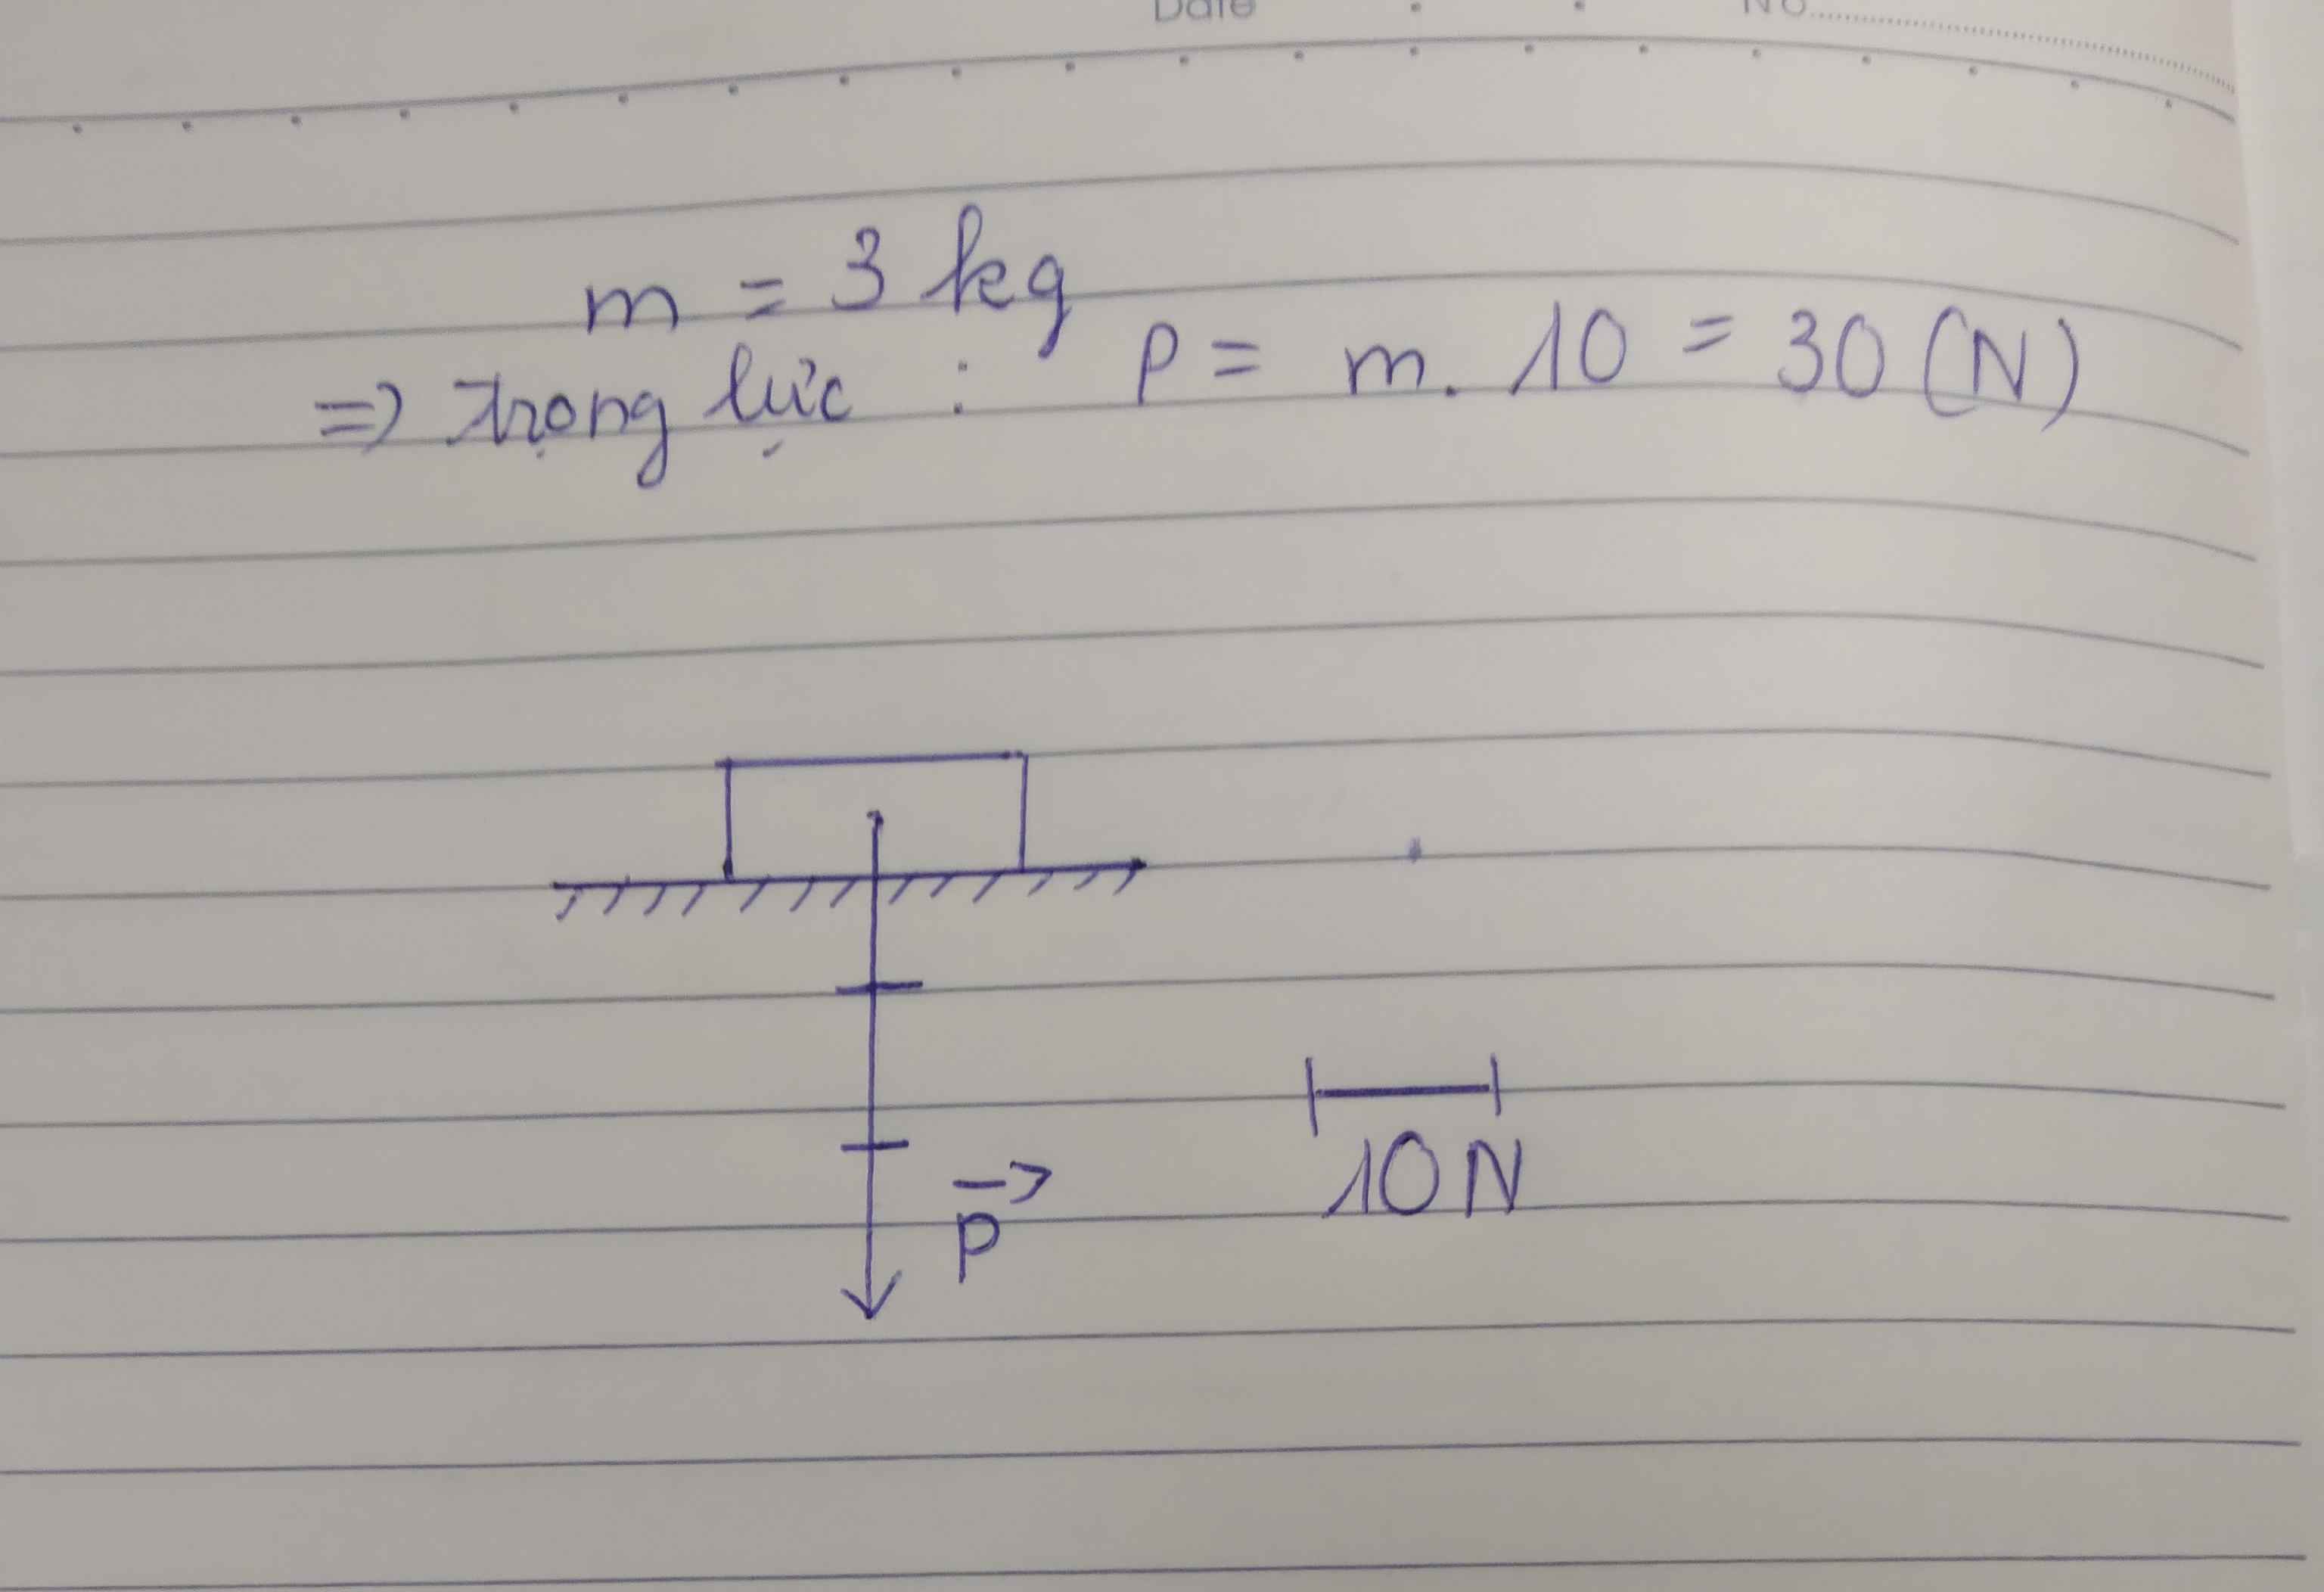 Date No
m = 3 kg
=> trọng lực : P = m. 10 = 30 (N)
P
10 N